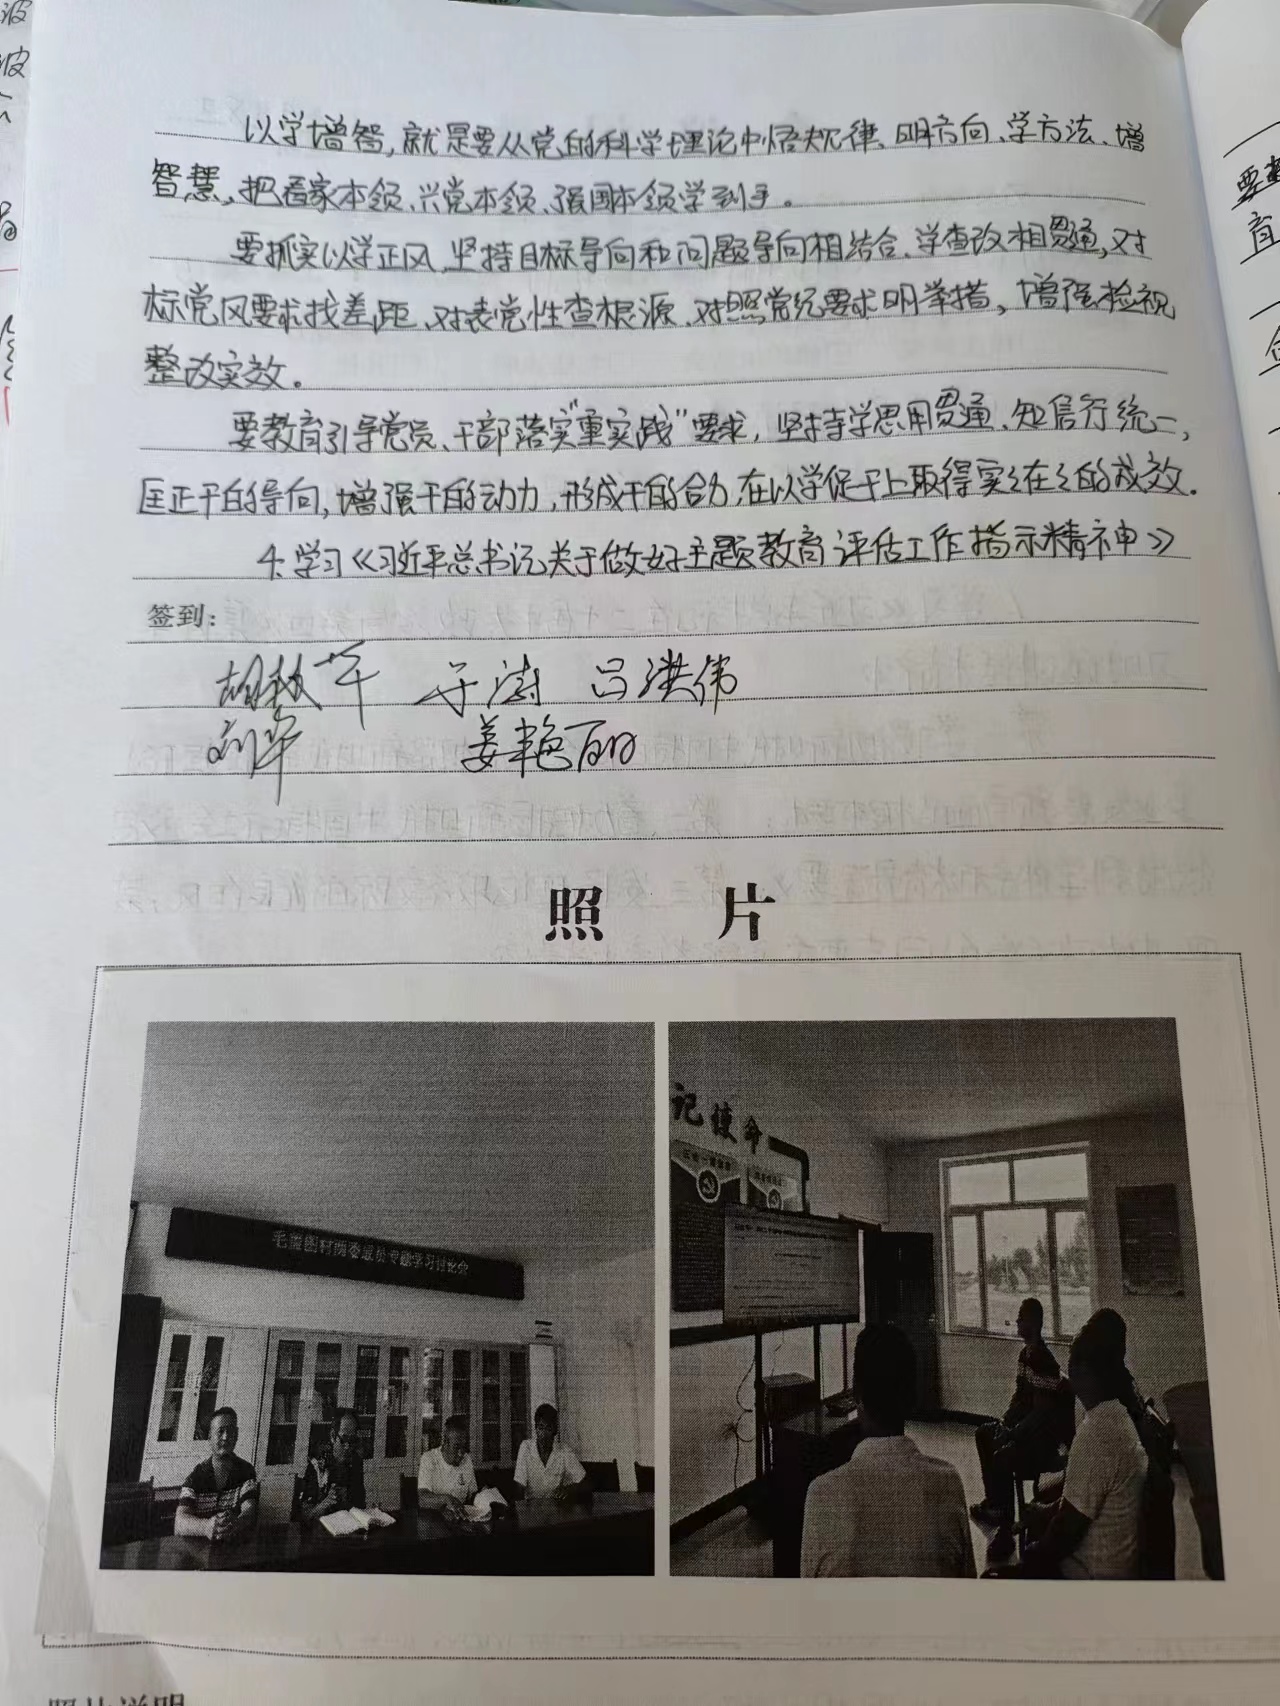 以学增智,就是要从党的科学理论中悟规律、明方向、学方法、增
智慧,把看家本领、兴党本领、强国本领学到手。
要抓实以学正风,坚持目标导向和问题导向相结合、学查改相贯通,对
标党风要求找差距、对表党性查根源、对照党纪要求明举措,增强检视
整改实效。
要教育引导党员、干部落实“重实践”要求,坚持学思用贯通、知信行统一,
匡正干的导向,增强干的动力,形成干的合力,在以学促干上取得实实在在的成效.
4.学习《习近平总书记关于做好主题教育评估工作指示精神》
签到:
胡秋华 于涛 吕洪伟
刘军 姜艳丽
照 片
村两委成员专题学习讨论会
记使命
照片说明
要
育